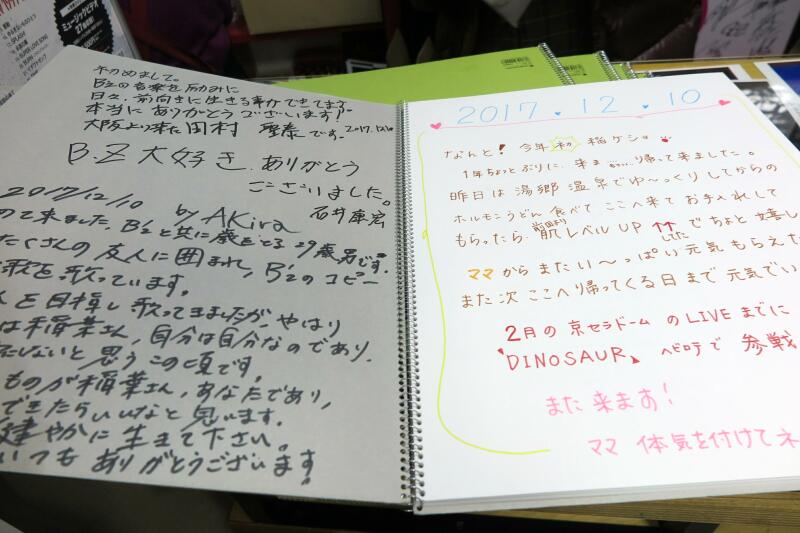 ミュージックビデオ
初めまして。
B'zの音楽を励みに
日々、前向きに生きる事ができてます。
本当にありがとうございます!
大阪より来た 田村 です。2017.12.10
B'Z 大好き ありがとう
ございました。
石井康宏
2017/12/10 by AKira
めて来ました。B'zと共に歳をとる29歳男です。
たくさんの友人に囲まれ、B'zのコピー
歌を歌っています。
を目指し歌ってきましたが、やはり
は稲葉さん、自分は自分なのであり、
ないと思うこの頃です。
ものが稲葉さん、あなたであり、
できたらいいなと思います。
健やかに生きて下さい。
いつもありがとうございます!
2017.12.10
なんと! 今年初 稲ケショ
1年ちょっとぶりに、来ま 帰って来ました。
昨日は湯郷温泉でゆ〜っくりしてからの
ホルモンうどん食べて ここへ来て お手入れして
もらったら 前回より 肌レベルUP↑↑ でちょと嬉し
してた
ママからまたい〜っぱい元気もらえた
また次ここへ帰ってくる日まで元気でい
2月の京セラドームのLIVEまでに
"DINOSAUR" ヘビロテで参戦
また来ます!
ママ 体気を付けてネ